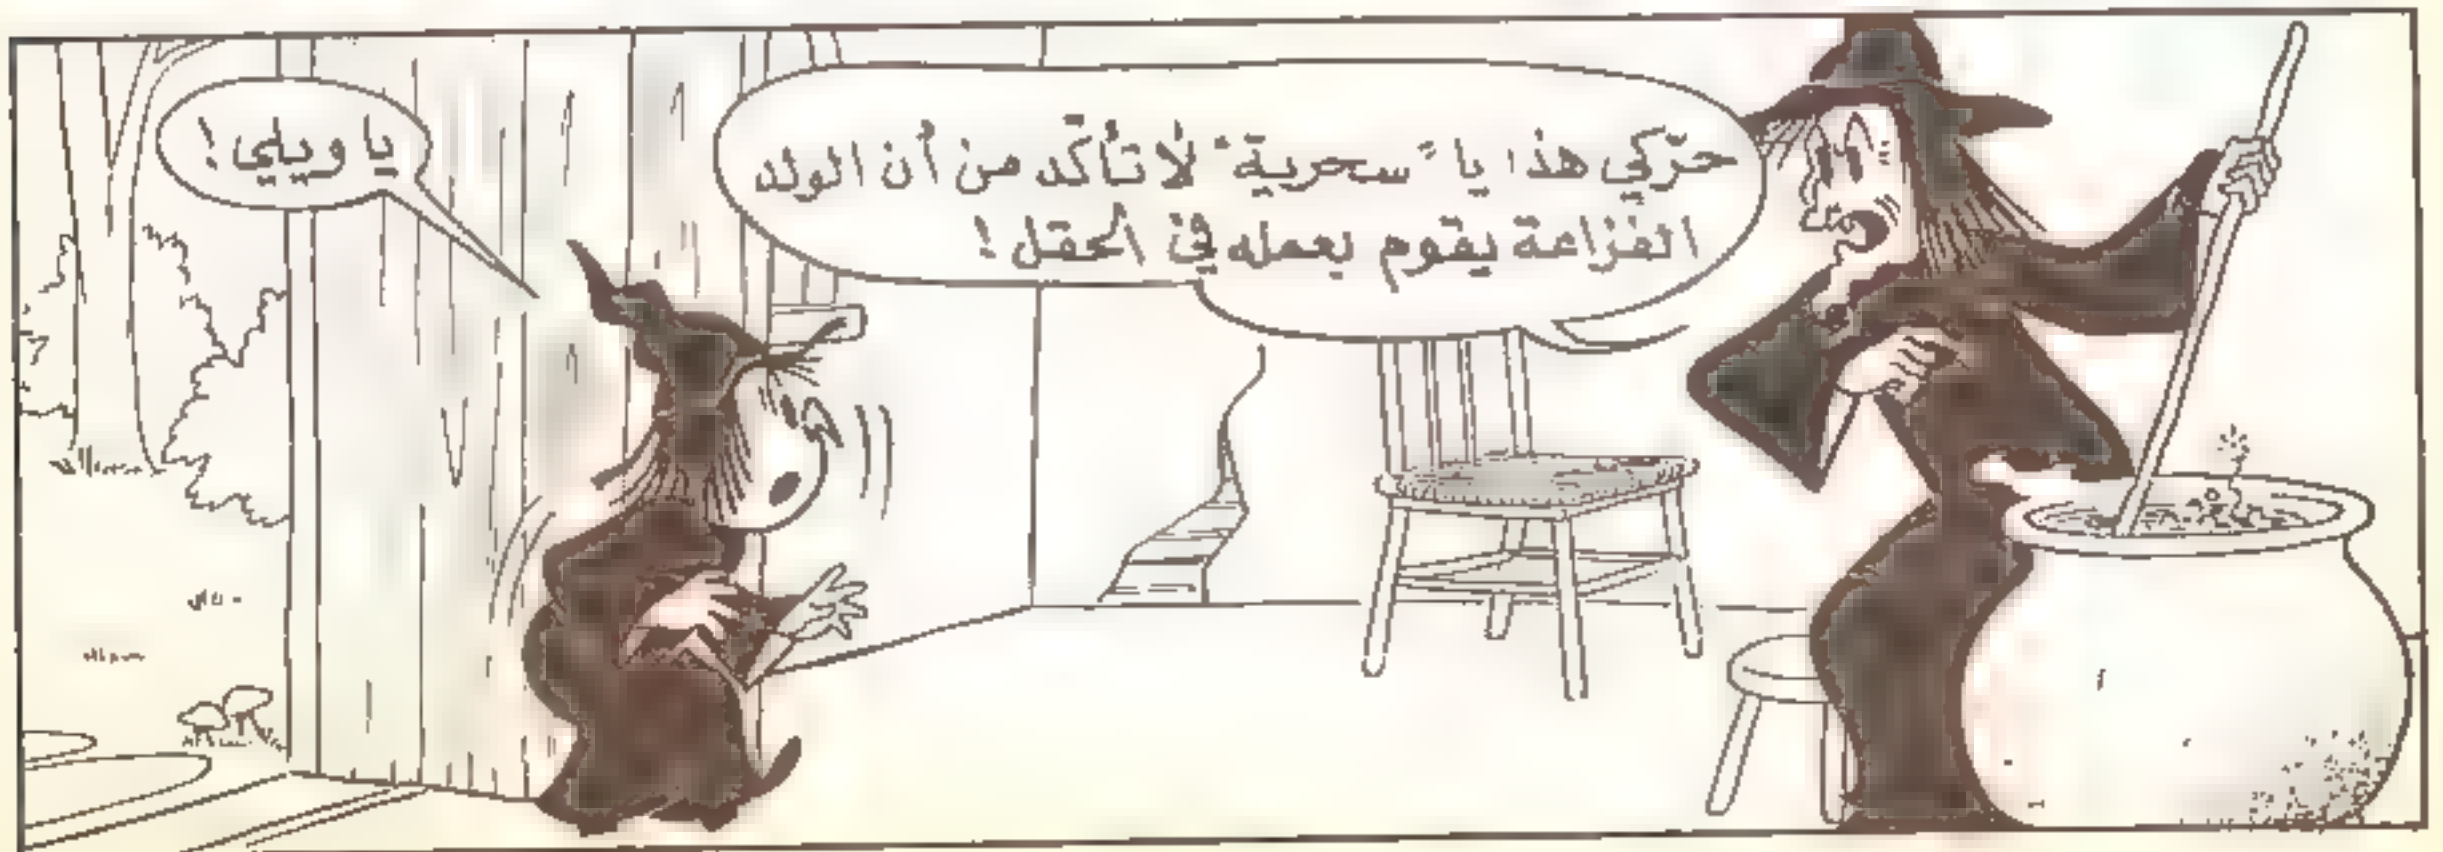 حرّكي هذا يا "سحرية" لأتأكّد من أن الولد
الفزاعة يقوم بعمله في الحقل!
يا ويلي!